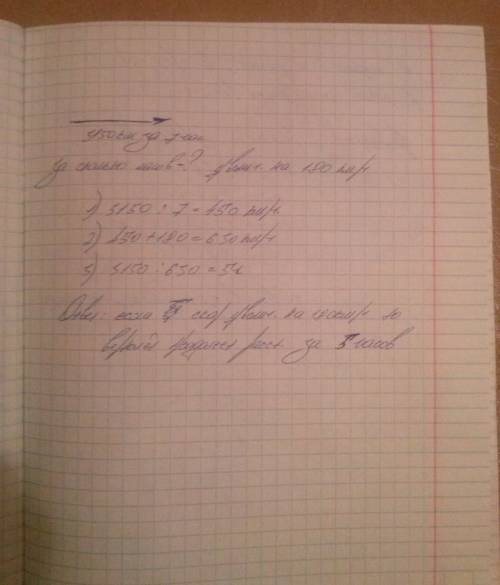 3150км за 7 час
За сколько часов-? увел. на 180 км/ч
1) 3150 : 7 = 450 км/ч
2) 450 + 180 = 630 км/ч
3) 3150 : 630 = 5ч
Ответ: если скор увел. на 180км/ч то
вертолёт раст. за 5 часов